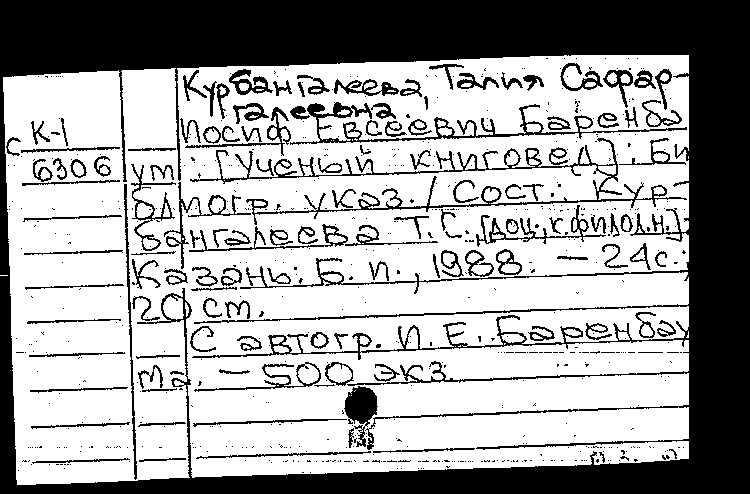 Курбангалеева, Талия Сафар-
галеевна.
К-1 Иосиф Евсеевич Баренба
с 6306 ум : [Ученый книговед] : Би
блиогр. указ. / Сост.: Кур-
бангалеева Т. С., [доц., к.филол.н.].-
Казань: Б. и., 1988. — 24с.;
20 см.
С автогр. И. Е. Баренбау
ма. — 500 экз.